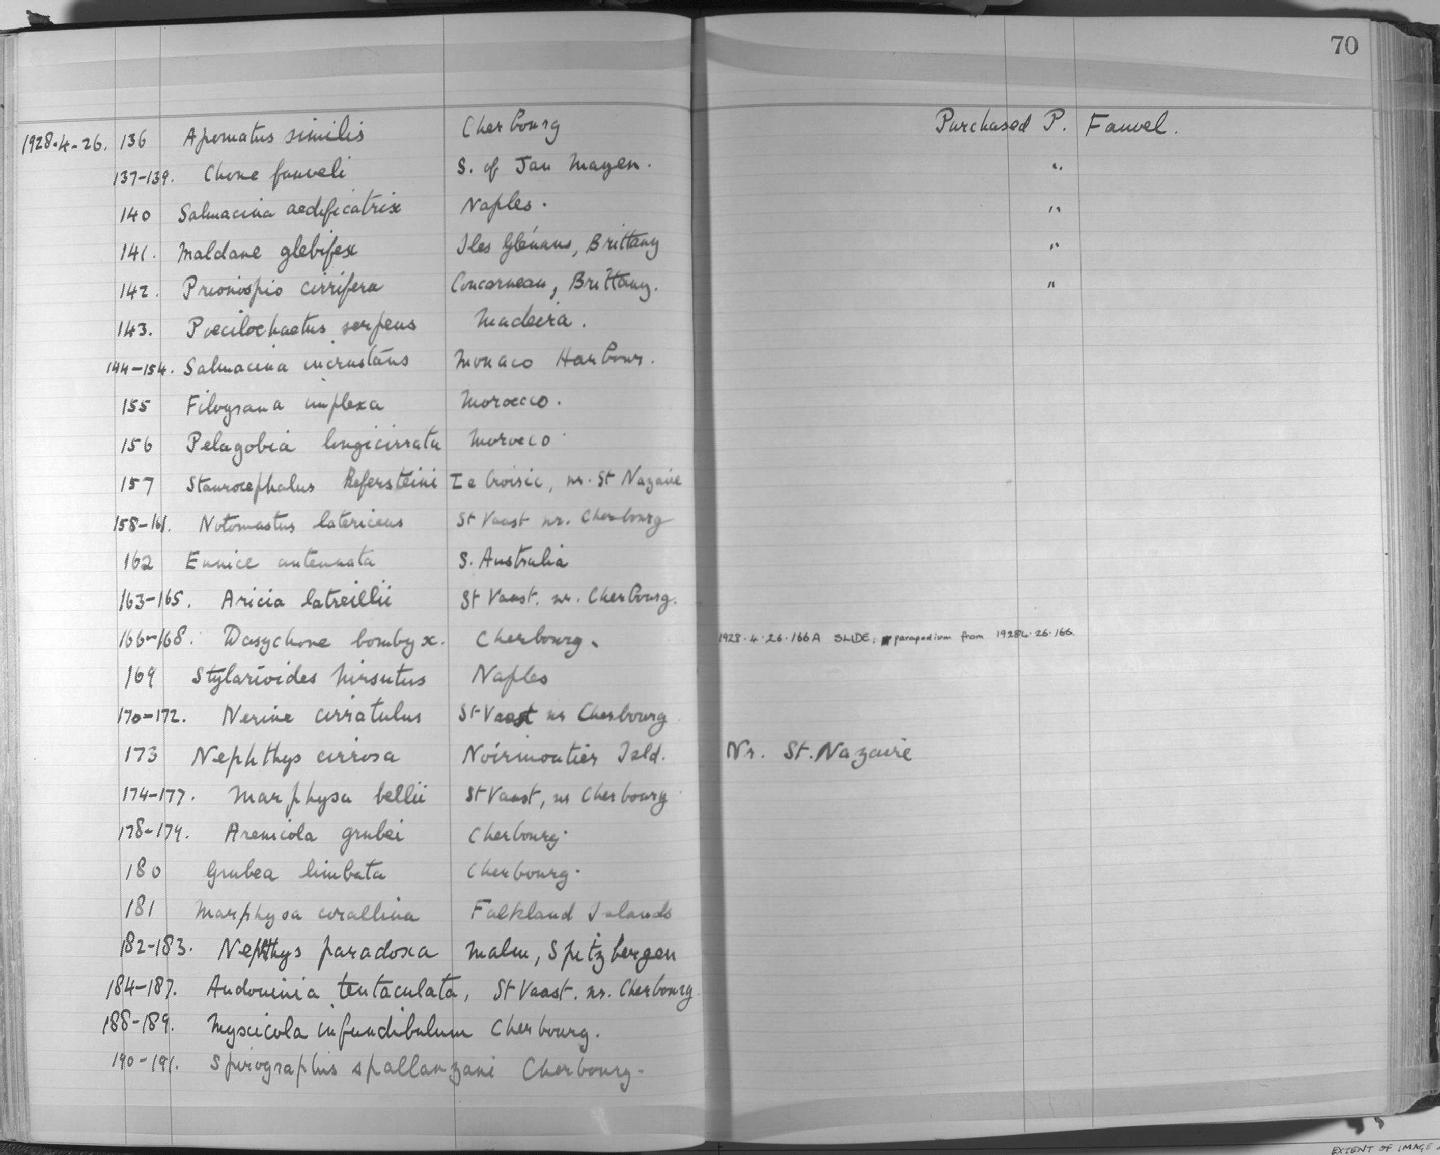 70
1928.4.26. 136 Apomatus similis Cherbourg Purchased P. Fauvel.
137-139. Chone fauveli S. of Jan Mayen. "
140 Salmacina aedificatrix Naples. "
141. Maldane glebifex Iles Glénans, Brittany "
142. Prionospio cirrifera Concarneau, Brittany. "
143. Poecilochaetus serpens Madeira.
144-154. Salmacina incrustans Monaco Harbour.
155 Filograna implexa Morocco.
156 Pelagobia longicirrata Morocco
157 Staurocephalus Kefersteini Le Croisic, nr. St Nazaire
158-161. Notomastus latericeus St Vaast nr. Cherbourg
162 Eunice antennata S. Australia
163-165. Aricia latreillii St Vaast. nr. Cherbourg.
166-168. Dasychone bombyx. Cherbourg. 1928.4.26.166A SLIDE; parapodium from 19284.26.166.
169 Stylarioides hirsutus Naples
170-172. Nerine cirratulus St Vaast nr Cherbourg
173 Nephthys cirrosa Noirmoutier Isld. Nr. St. Nazaire
174-177. Marphysa bellii St Vaast, nr Cherbourg
178-179. Arenicola grubei Cherbourg.
180 Grubea limbata Cherbourg.
181 Marphysa corallina Falkland Islands
182-183. Nephthys paradoxa Malm, Spitzbergen
184-187. Audouinia tentaculata, St Vaast. nr. Cherbourg
188-189. Myxicola infundibulum Cherbourg.
190-191. Spirographis spallanzani Cherbourg.
EXTENT OF IMAGE